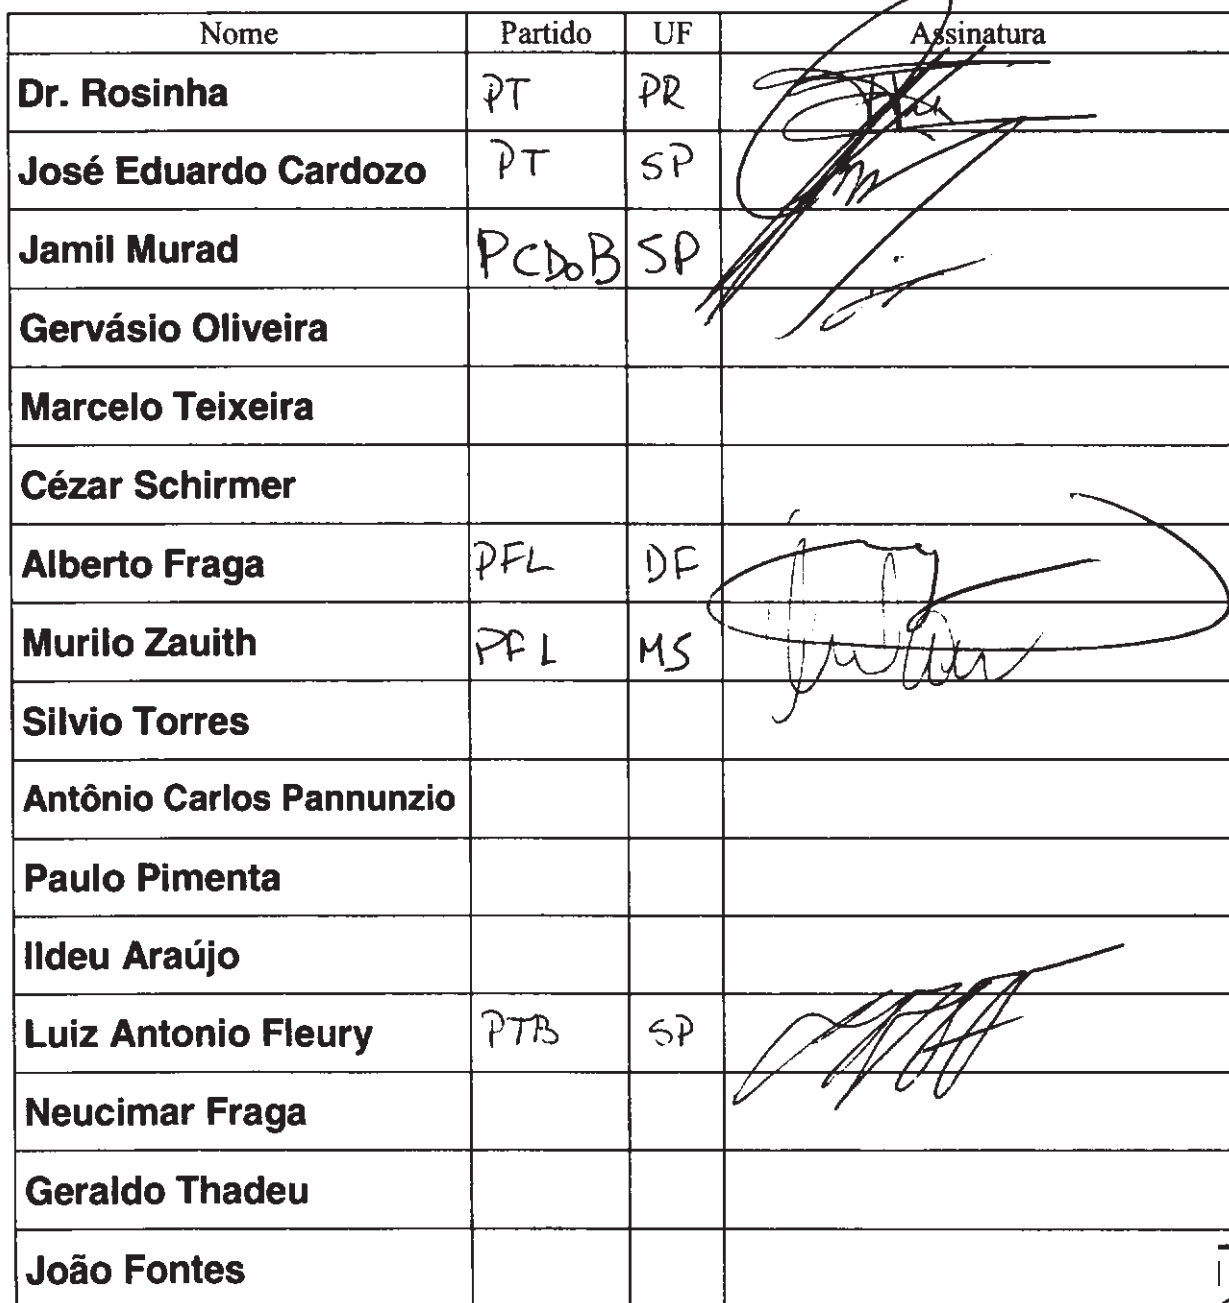 Nome Partido UF Assinatura
Dr. Rosinha PT PR
José Eduardo Cardozo PT SP
Jamil Murad PCDoB SP
Gervásio Oliveira
Marcelo Teixeira
Cézar Schirmer
Alberto Fraga PFL DF
Murilo Zauith PFL MS
Silvio Torres
Antônio Carlos Pannunzio
Paulo Pimenta
Ildeu Araújo
Luiz Antonio Fleury PTB SP
Neucimar Fraga
Geraldo Thadeu
João Fontes